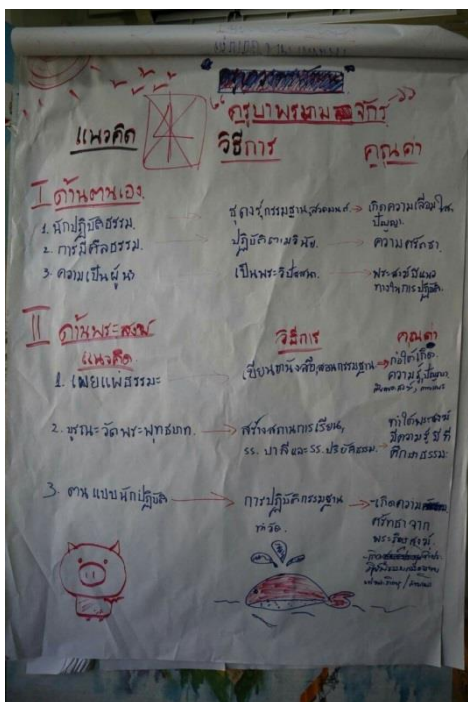 "ครูบาพรหมจักร"
แนวคิด วิธีการ คุณค่า
I ด้านตนเอง
1. นักปฏิบัติธรรม. ธุดงค์, กรรมฐาน, สวดมนต์ → เกิดความเลื่อมใส,
ปัญญา.
2. การมีศีลธรรม. ปฏิบัติตามวินัย → ความศรัทธา.
3. ความเป็นผู้นำ เป็นพระวิปัสสนา. → พระสงฆ์มีแนว
ทางในการปฏิบัติ.
II ด้านพระสงฆ์ วิธีการ คุณค่า
แนวคิด
1. เผยแผ่ธรรมะ เขียนหนังสือ, สอนกรรมฐาน → ก่อให้เกิด
ความรู้, ปัญญา
2. บูรณะวัดพระพุทธบาท. → สร้างสถานการเรียน, ทำให้พระสงฆ์
รร. บาลีและรร. ปริยัติธรรม. → มีความรู้ มีที่
ศึกษาธรรมะ
3. ตนแบบนักปฏิบัติ → การปฏิบัติกรรมฐาน → -เกิดความ
ศรัทธาจาก